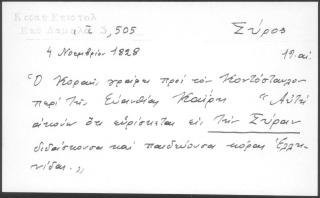 Κοραή Επιστολ
Εκδ Δαμαλά 3, 505 Σύρος
4 Νοεμβρίου 1828 19 αι.
Ὁ Κοραής γράφει πρὸς τὸν Κοντόσταυλον
περὶ τῆς Εὐανθίας Καΐρη "Αὐτὴ
ἀκούω ὅτι εὑρίσκεται εἰς τὴν Σύραν
διδάσκουσα καὶ παιδεύουσα κόρας Ἑλλη-
νίδας.,,